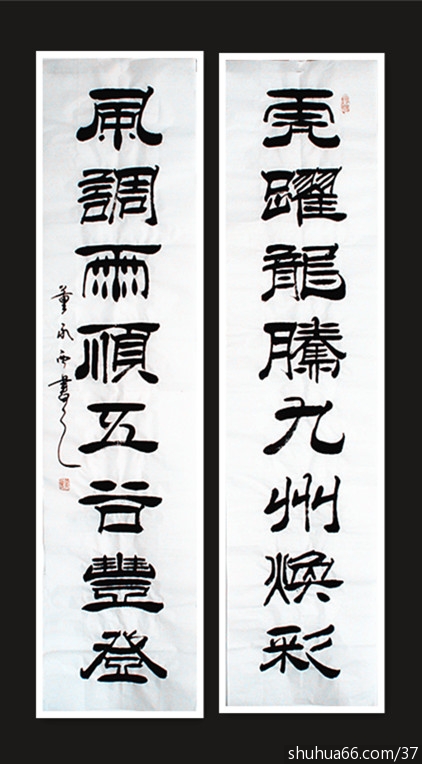 虎躍龍騰九州煥彩
風調雨順五谷豐登
董 書
shuhua66.com/37